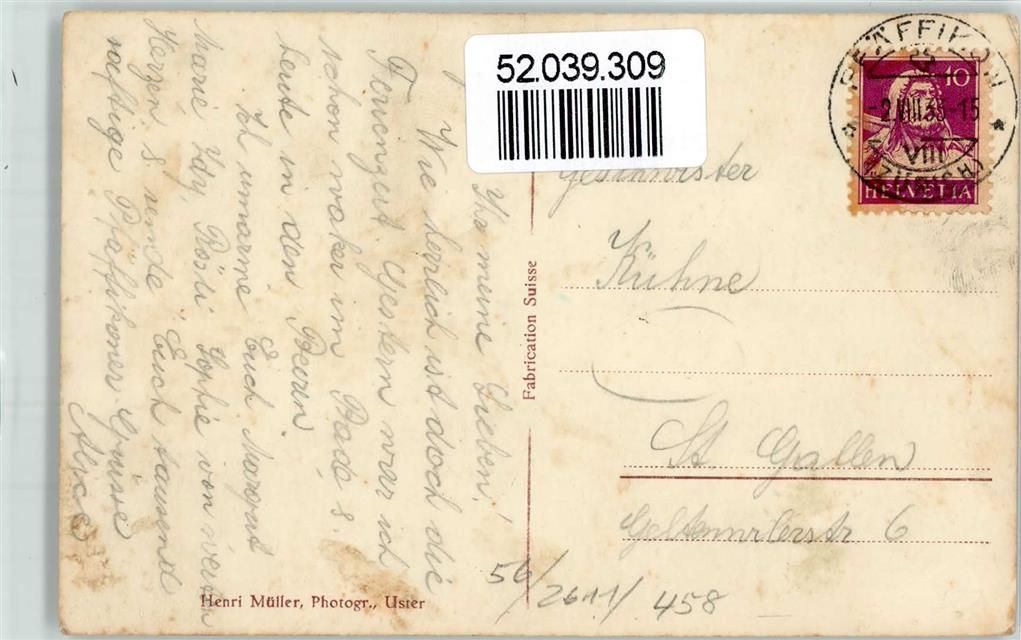 52.039.309
PFÄFFIKON
-2.VIII.33-15
VIII
(ZÜRICH)
10
HELVETIA
Ihr meine Lieben!
Wie herrlich ist doch die
Ferienzeit. Gestern war ich
schon waker im Bade &
heute in den Beeren.
Ich umarme Euch Margrit
Marie Idy, Rösli Sophie von
Herzen & sende Euch tausend
Pfäffikoner Grüsse
Alice
Fabrication Suisse
Henri Müller, Photogr., Uster
Geschwister
Kühne
St. Gallen
6
56/2611/458